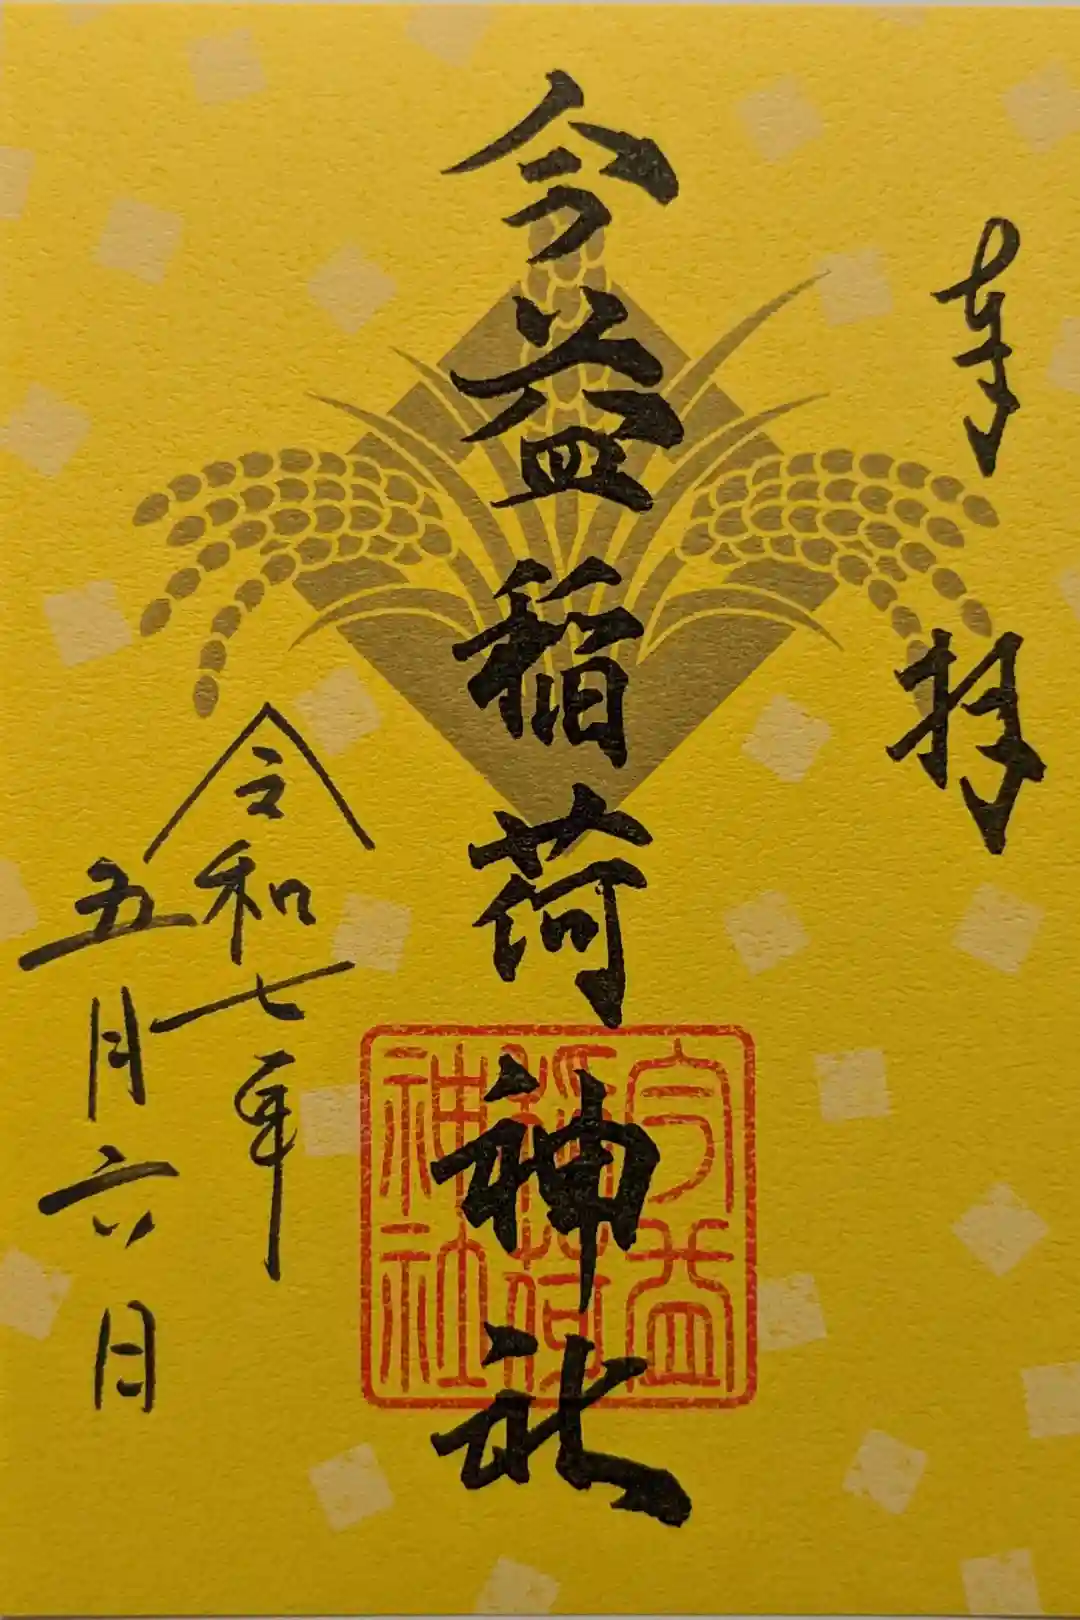 奉拝
今益稲荷神社
今益
稲荷
神社
令和七年
五月六日